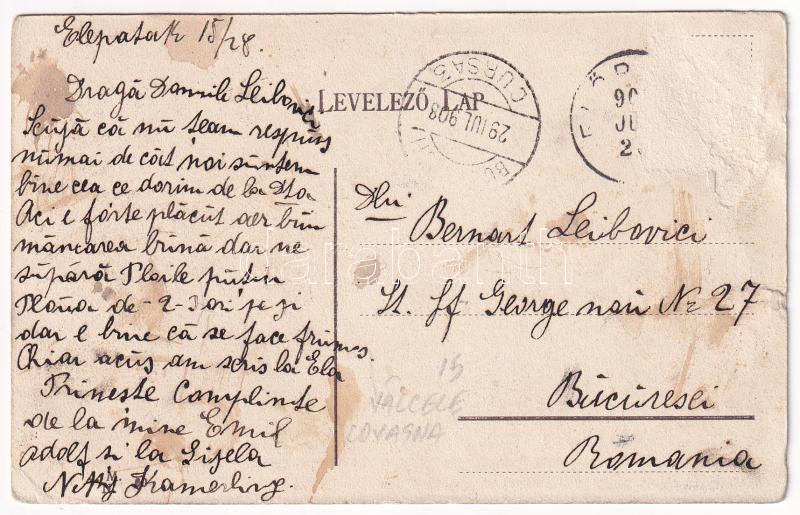 Elepatak 15/28.
Dragă Domnule Leibovici
Scuză că nu team respuns
numai de cât noi suntem
bine cea ce dorim de la Dta
Aci e forte plăcut aer bun
mâncarea bună dar ne
supără Ploile puțin
Ploua de - 2-3 ori pe zi
dar e bine că se face frumos.
Chiar acuș am scris la Ela
Primeste Complimte
de la mine Emil
adolf si la Gisela
Kamerling.
LEVELEZŐ LAP
CURSA 3
29 IUL 908
BU
ELŐP
90
JU
2
Dlui
Bernart Leibovici
St. Gf George nou № 27
Bucuresci
Romania
15
VÂLCELE
COVASNA
Darabanth